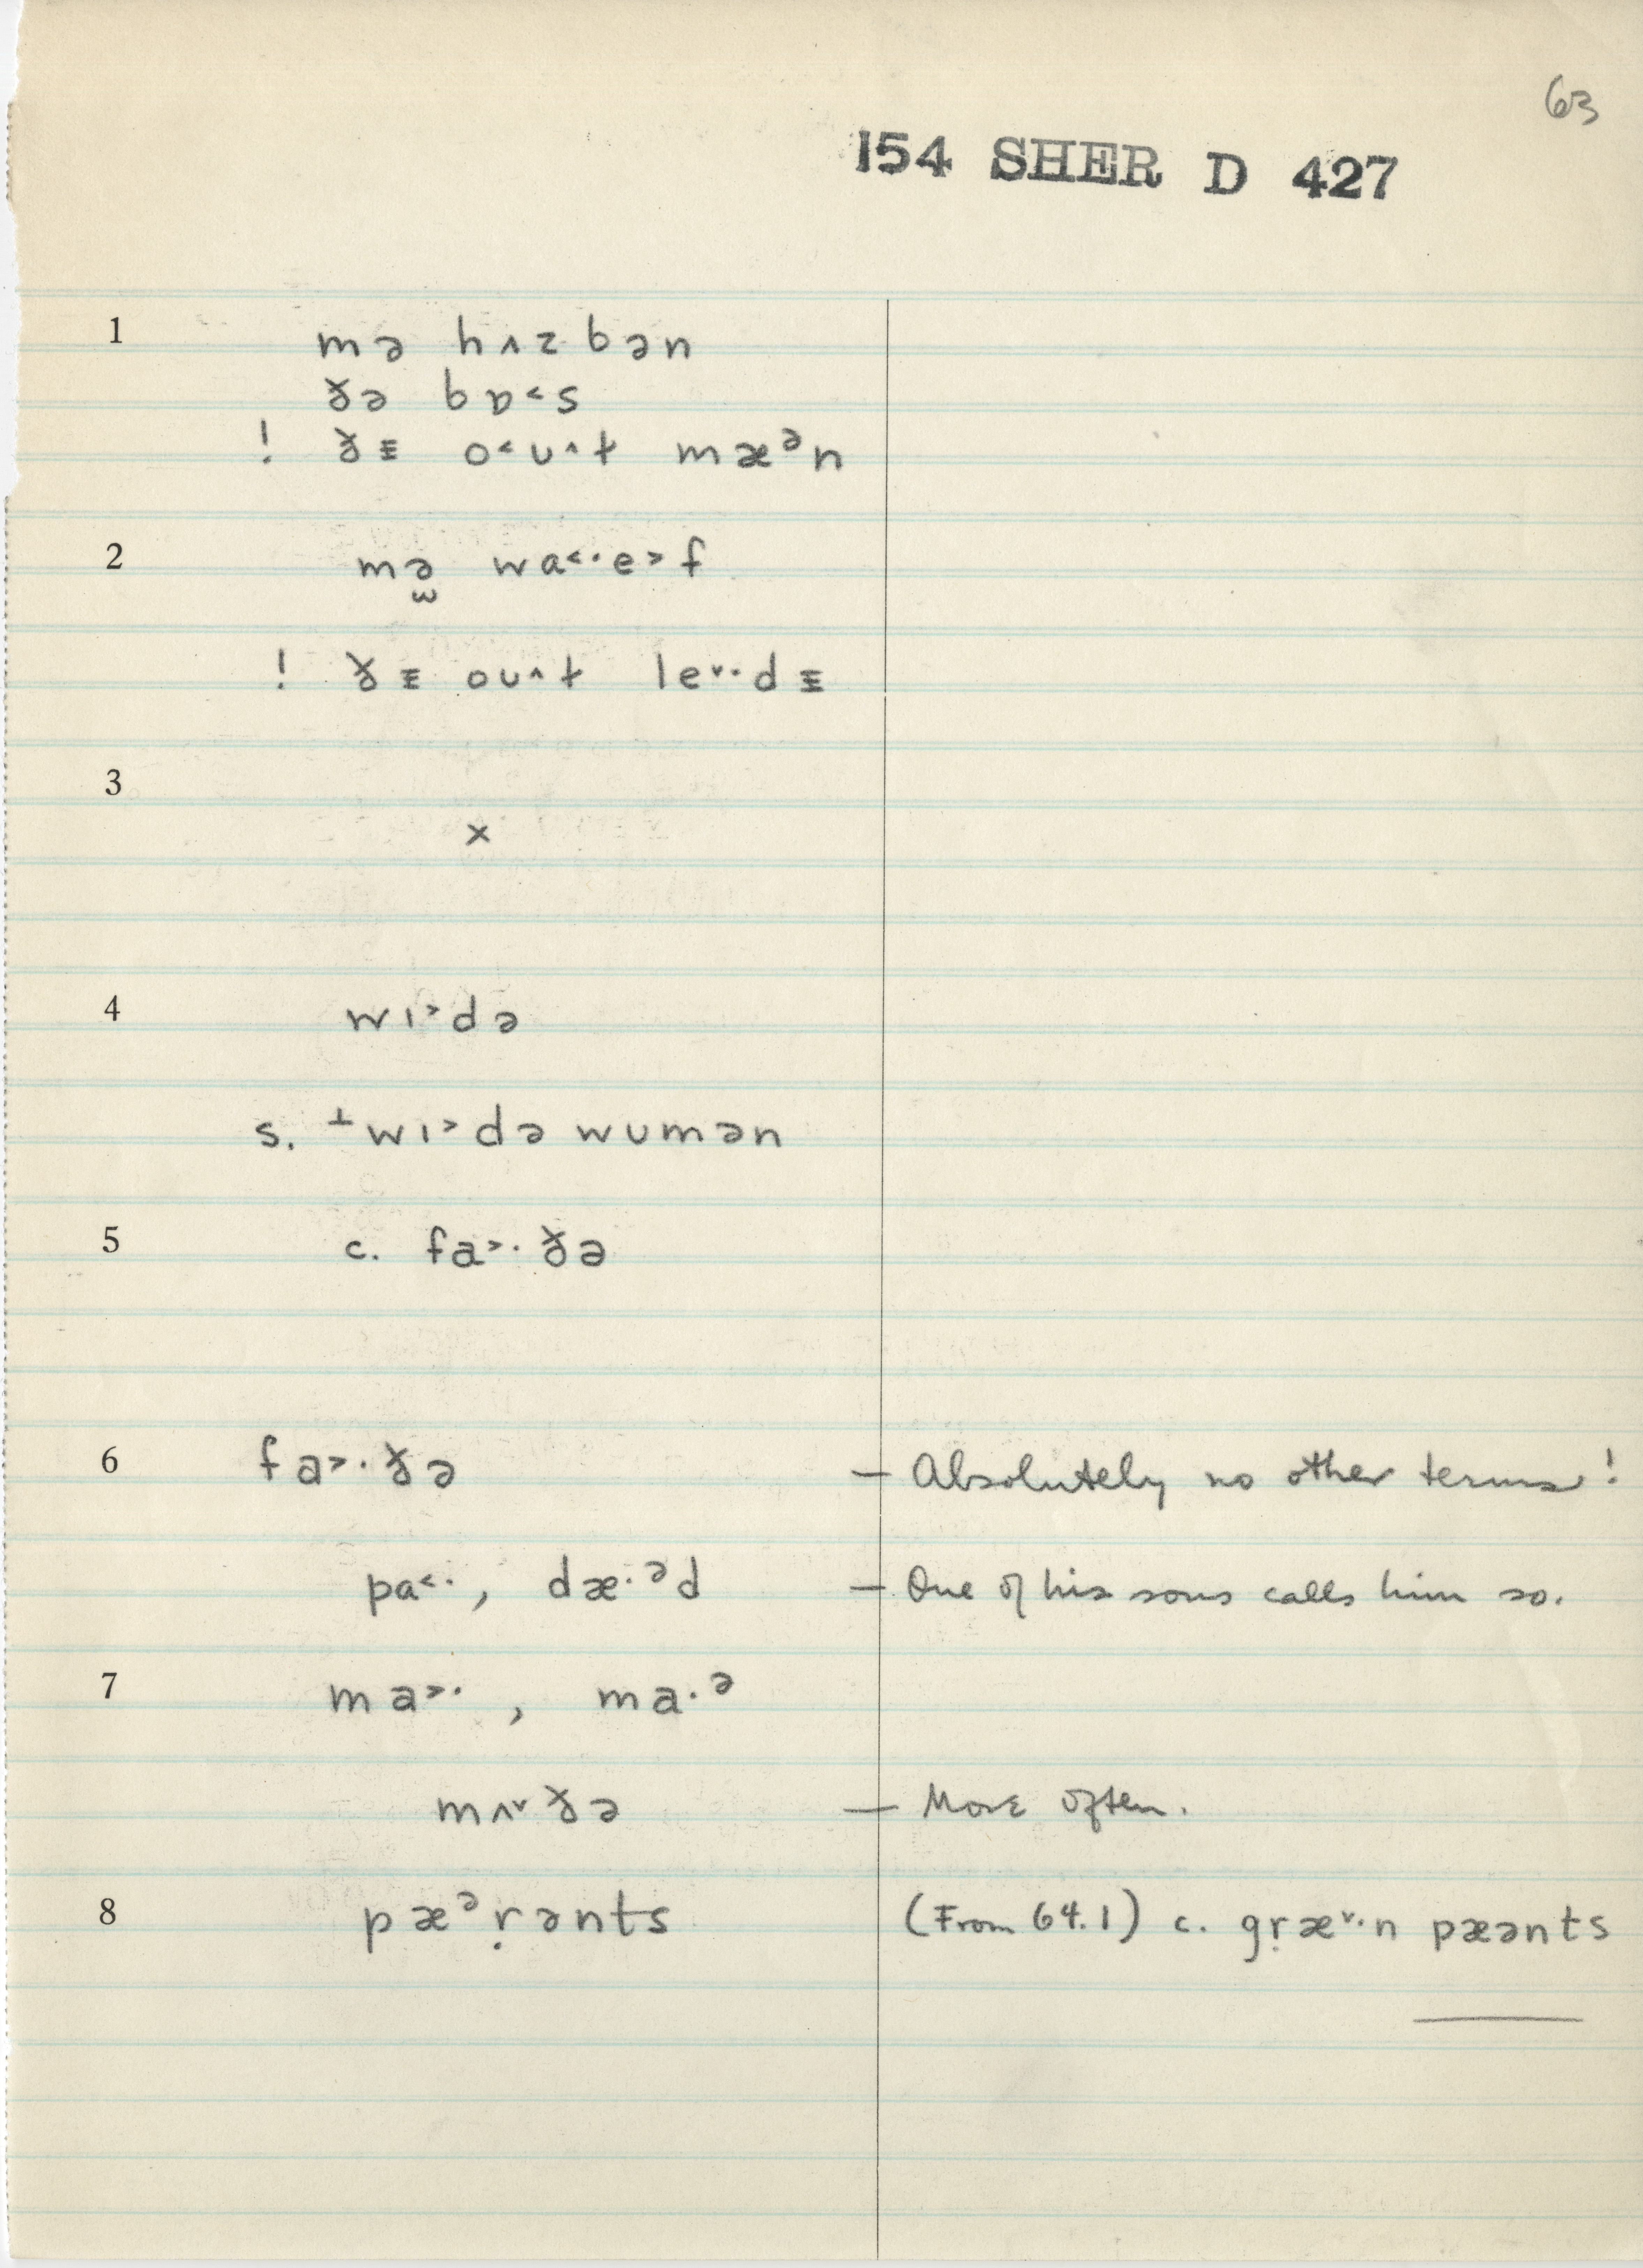 63
154 SHER D 427
1 mə hʌzbən
ðə bɒ˂s
! ðᵻ o˂ʊ^t mæᵊn
2 mə̯ wa˂·e˃f
! ðᵻ oʊ^t le˅·dᵻ
3
×
4 wɪ˃də
s. ⊥wɪ˃də wʊmən
5 c. fa˃·ðə
6 fa˃·ðə — Absolutely no other terms!
pa˂·, dæ·ᵊd — One of his sons calls him so.
7 ma˃·, ma·ᵊ
mʌ˅ðə — More often.
8 pæᵊṛənts (From 64.1) c. gṛæ˅·n pæənts